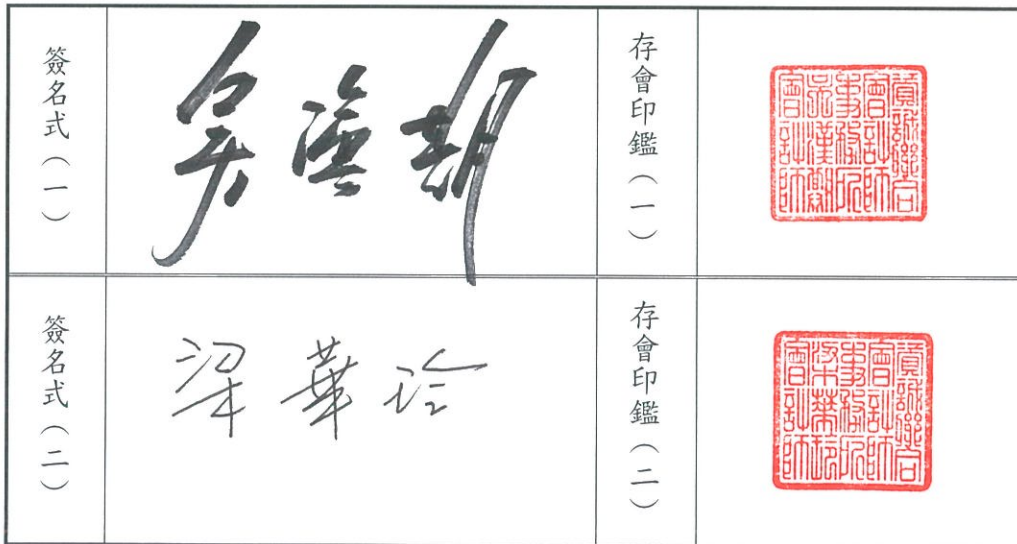 簽名式(一)
吳漢期
存會印鑑(一)
資誠聯合
會計師
事務所
吳漢期
會計師
簽名式(二)
梁華玲
存會印鑑(二)
資誠聯合
會計師
事務所
梁華玲
會計師